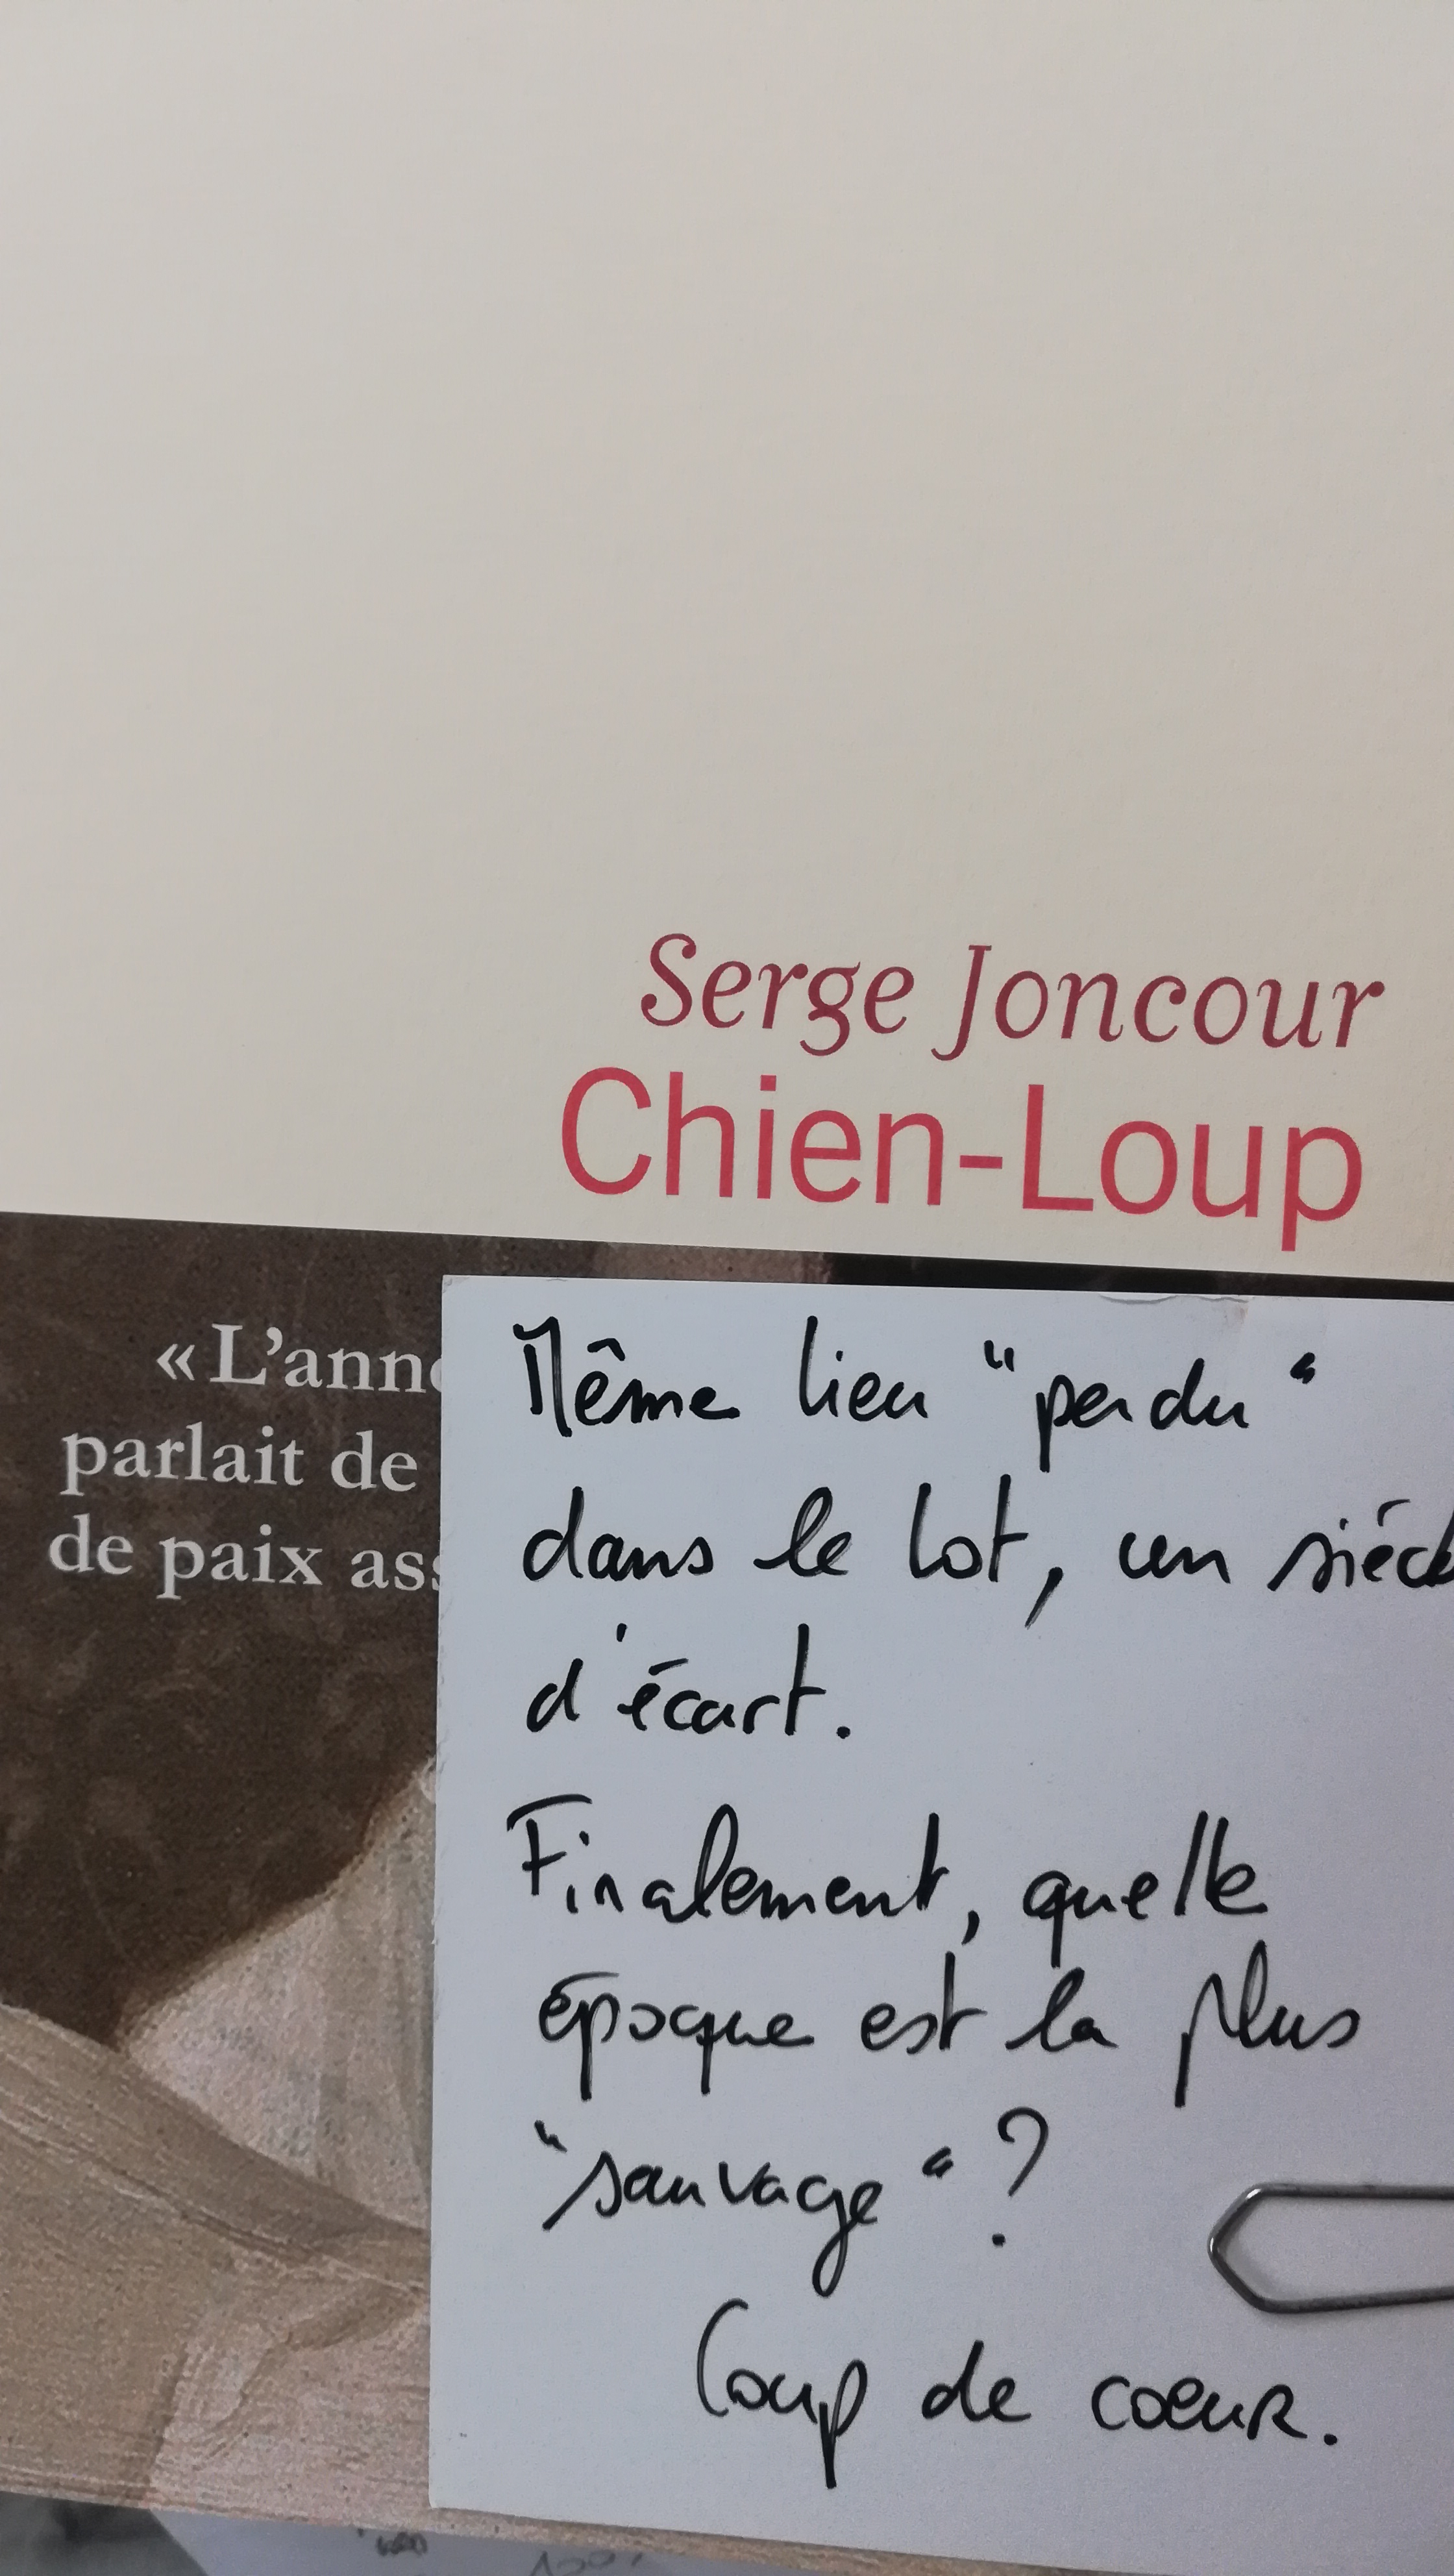 Serge Joncour
Chien-Loup
« L'ann
parlait de
de paix as
Même lieu "perdu"
dans le Lot, un siécl
d'écart.
Finalement, quelle
époque est la plus
"sauvage" ?
Coup de coeur.